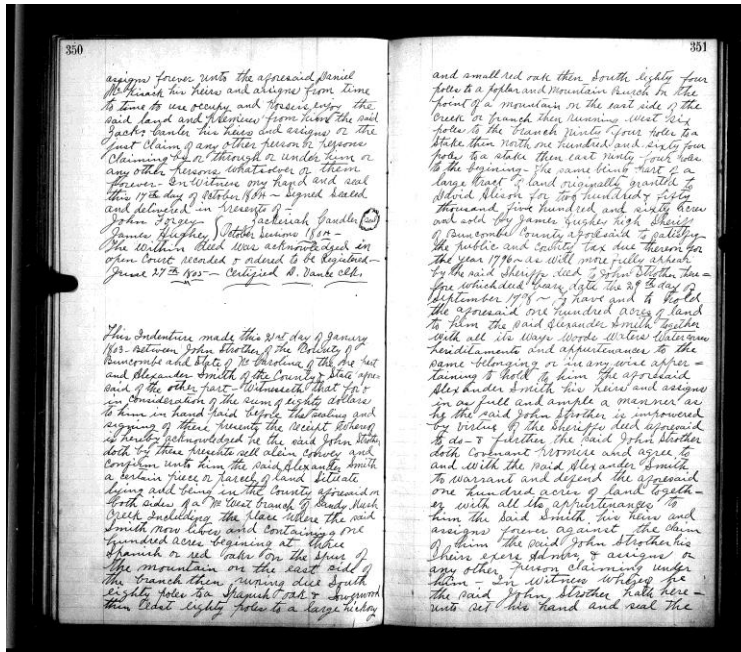 350
assigns forever unto the aforesaid Daniel
McKisack his heirs and assigns from time
to time to use occupy and possess enjoy the
said land and premises from him the said
Jack. Canler his heirs and assigns or the
just claim of any other person or persons
claiming by or through or under him or
any other persons whatsoever or them
forever - In Witness my hand and seal
this 17th day of October 1804 - Signed Sealed
and delivered in presents of -
John Forger { Zachriah Candler (Seal)
James Hughey { October Sessions 1804 -
The within deed was acknowledged in
open Court recorded & ordered to be Registered -
June 27th 1805 - Certified D. Vance Clk.
This Indenture made this 21st day of January
1803 - Between John Strother of the County of
Buncombe and State of No Carolina of the one part
and Alexander Smith of the County & State afore
said of the other part - Witnesseth that for &
in Consideration of the sum of eighty dollars
to him in hand paid before the sealing and
signing of these presents the receipt whereof
is hereby acknowledged he the said John Strother
doth by these presents sell alein convey and
confirm unto him the said Alexander Smith
a certain piece or parcel of land Situate
lying and being in the County aforesaid on
both sides of a West branch of Sandy Mush
Creek Including the place where the said
Smith now lives and containing one
hundred acres begining at three
Spanish or red oaks on the spur of
the mountain on the east side of
the branch then runing due South
eighty poles to a Spanish oak & Sowerwood
then East eighty poles to a large hickory
351
and small red oak then South eighty four
poles to a poplar and Mountain Burch on the
point of a mountain on the east side of the
creek or branch then running West six
poles to the branch ninty four poles to a
Stake then north one hundred and sixty four
poles to a stake then east ninty-four poles
to the begining - The same being part of a
large tract of land originally granted to
David Alison for two hundred & fifty
thousand five hundred and sixty acres
and sold by James Hughey high Sheriff
of Buncombe County aforesaid to satisfy
the public and County tax due thereon for
the year 1796 - as will more fully appear
by the said Sheriffs deed to John Strother there =
fore which deed bears date the 29th day of
September 1798 - To have and to hold
the aforesaid one hundred acres of land
to him the said Alexander Smith together
with all its Ways Woods Waters Water
heridilaments and appertenances to the
same belonging or in any wise apper =
taining to hold to him the aforesaid
Alexander Smith his heirs and assigns
in as full and ample a manner as
he the said John Strother is impowered
by virtue of the Sheriffs deed aforesaid
to do - & further the said John Strother
doth Covenant promise and agree to
and with the said Alexander Smith
to warrant and defend the aforesaid
one hundred acres of land togeth-
er with all its appertenances to
him the Said Smith, his heirs and
assigns forever against the claim
of him the said John Strother his
heirs exers Admrs, & assigns or
any other person claiming under
him - In Witness whereof he
the said John Strother hath here -
unto set his hand and seal the